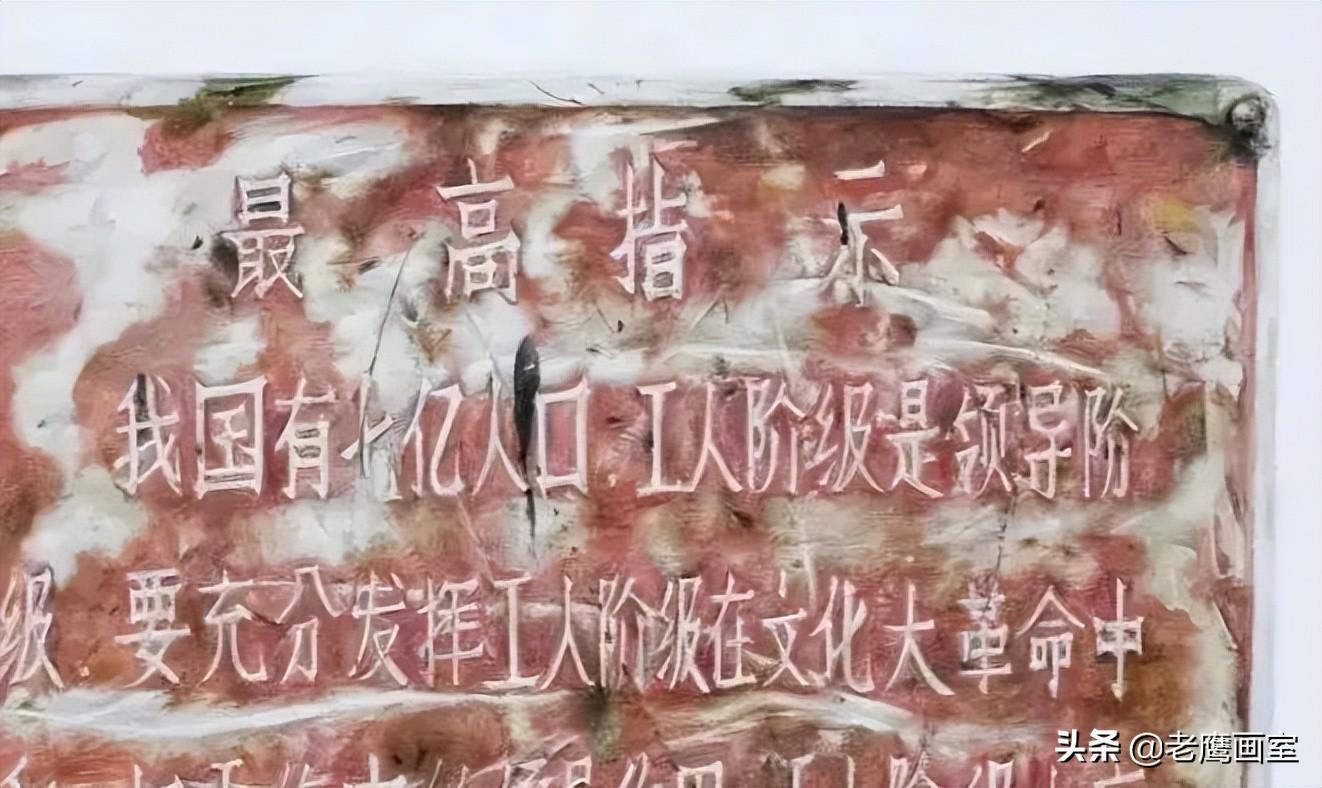 最高指示
我国有七亿人口,工人阶级是领导阶
级.要充分发挥工人阶级在文化大革命中
头条 @老鹰画室